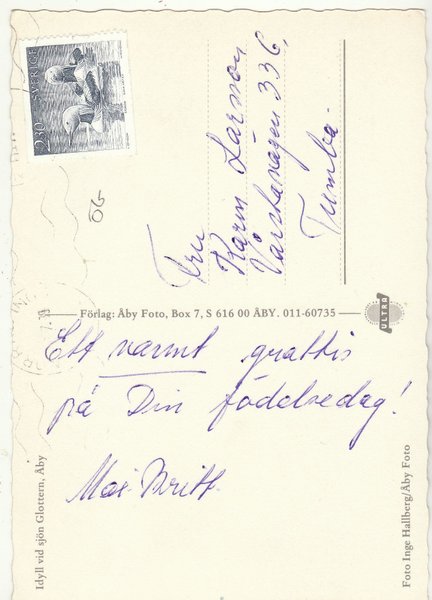 SVERIGE
230
OG
Fru
Karin Larsson
Vårstavägen 336,
Tumba
Förlag: Åby Foto, Box 7, S 616 00 ÅBY. 011-60735
ULTRA
Ett varmt grattis
på Din födelsedag!
Maj-Britt.
Idyll vid sjön Glottern, Åby
Foto Inge Hallberg/Åby Foto